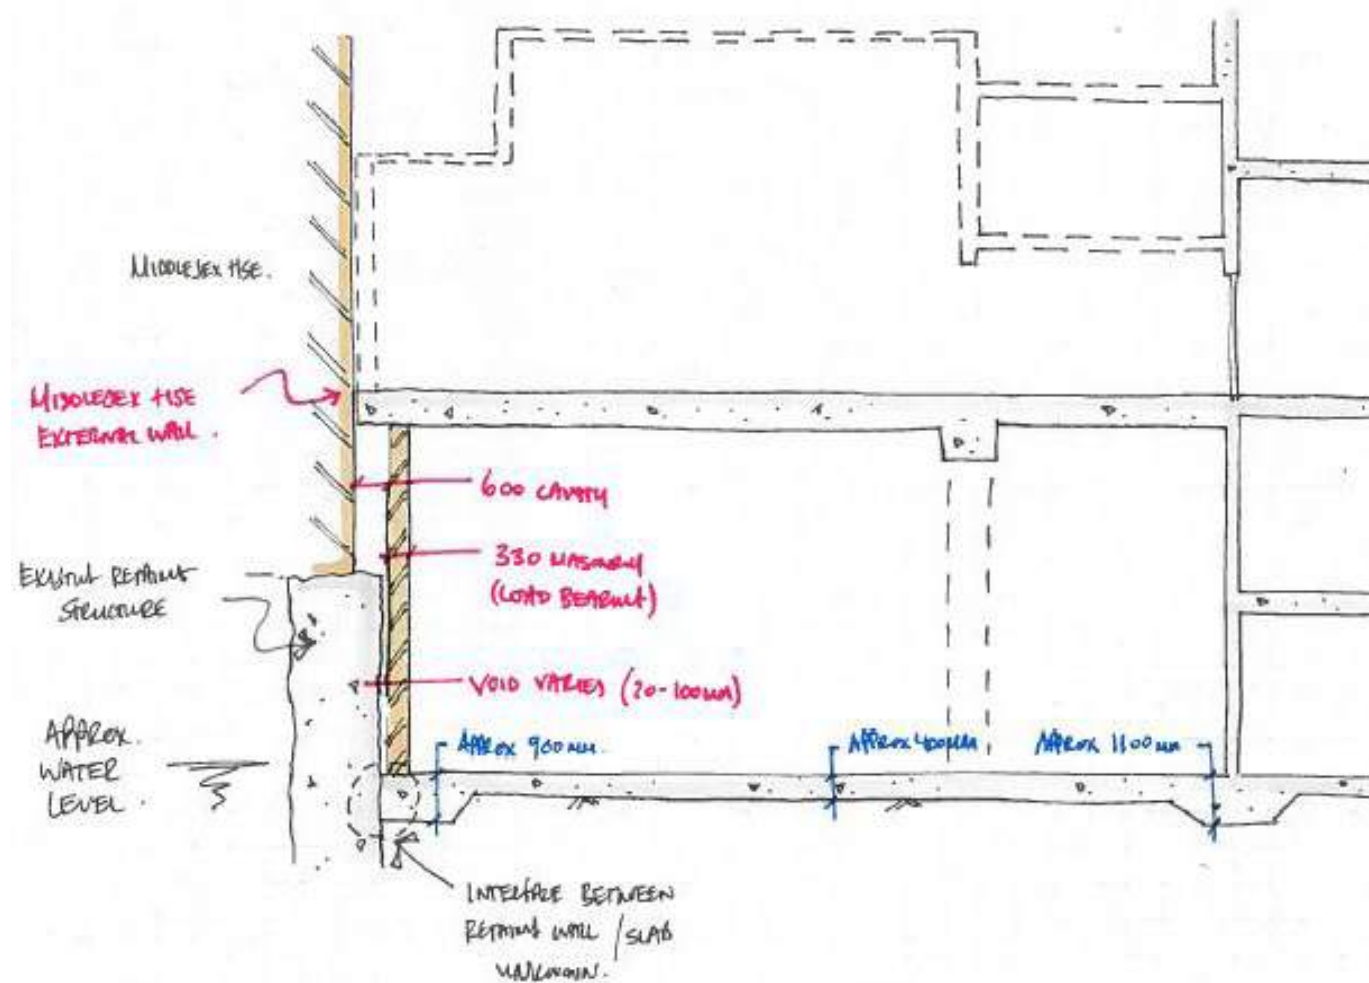 MIDDLESEX HSE.
MIDDLESEX HSE
EXTERNAL WALL.
600 CAVITY
330 MASONRY
(LOAD BEARING)
EXISTING RETAINING
STRUCTURE
VOID VARIES (20-100mm)
APPROX.
WATER
LEVEL.
APPROX 900mm.
APPROX 400mm
APPROX 1100mm
INTERFACE BETWEEN
RETAINING WALL / SLAB
UNKNOWN.